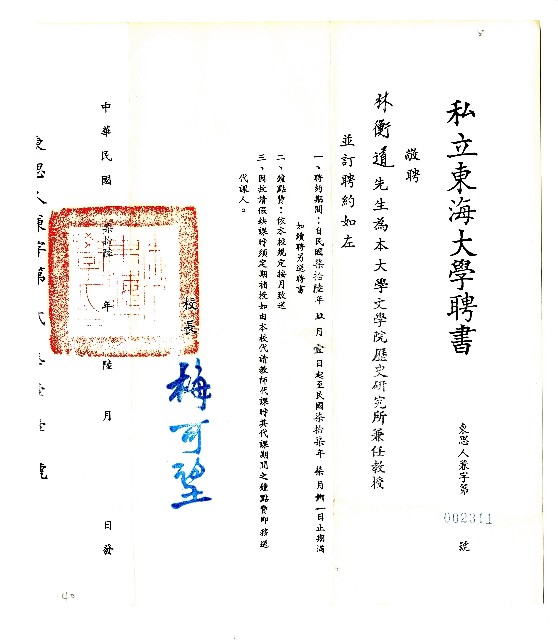 私立東海大學聘書
東思人兼字第002311號
敬聘
林衡道先生為本大學文學院歷史研究所兼任教授
並訂聘約如左
一、聘約期間：自民國柒拾陸年 月壹日起至民國柒拾柒年柒月卅一日止期滿
如續聘另送聘書
二、鐘點費：依本校規定按月致送
三、因故請假缺課時須定期補授如由本校代請教師代課時其代課期間之鐘點費即移送
代課人。
校長 梅可望
中華民國柒拾陸年 陸月 日發
東思人兼字第 號